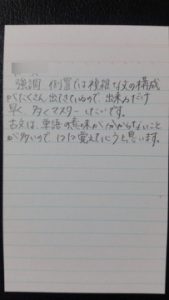 強調、倒置では複雑な文の構成
がたくさん出てきているので、出来るだけ
早く 多くマスターしたいです。
古文は、単語の意味が分からないこと
が多いので、1つ1つ覚えていこうと思います。